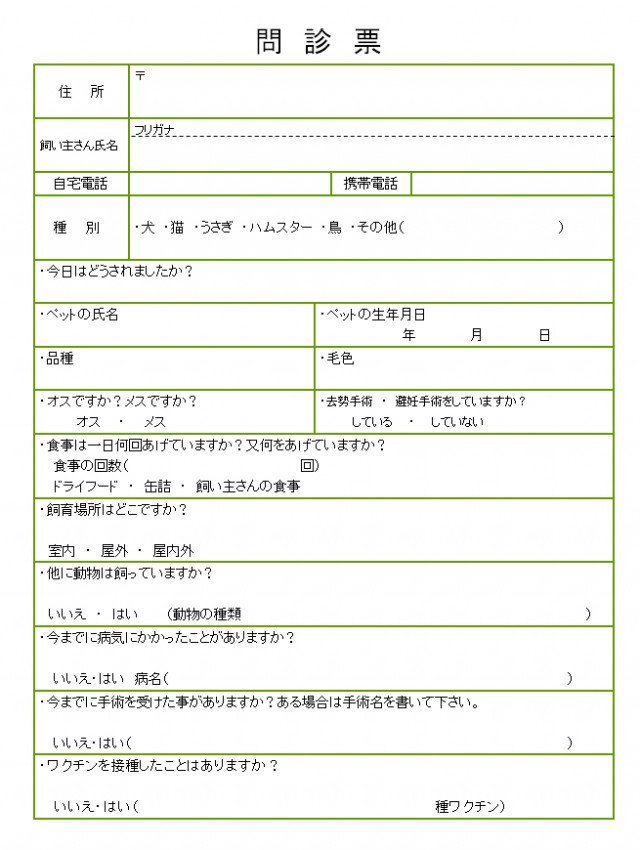 問 診 票
住 所
〒
飼い主さん氏名
フリガナ
自宅電話
携帯電話
種 別
・犬 ・猫 ・うさぎ ・ハムスター ・鳥 ・その他( )
・今日はどうされましたか？
・ペットの氏名
・ペットの生年月日
年 月 日
・品種
・毛色
・オスですか？メスですか？
オス ・ メス
・去勢手術 ・ 避妊手術をしていますか？
している ・ していない
・食事は一日何回あげていますか？又何をあげていますか？
食事の回数( 回)
ドライフード ・ 缶詰 ・ 飼い主さんの食事
・飼育場所はどこですか？
室内 ・ 屋外 ・ 屋内外
・他に動物は飼っていますか？
いいえ ・ はい (動物の種類 )
・今までに病気にかかったことがありますか？
いいえ・はい 病名( )
・今までに手術を受けた事がありますか？ある場合は手術名を書いて下さい。
いいえ・はい( )
・ワクチンを接種したことはありますか？
いいえ・はい( 種ワクチン)